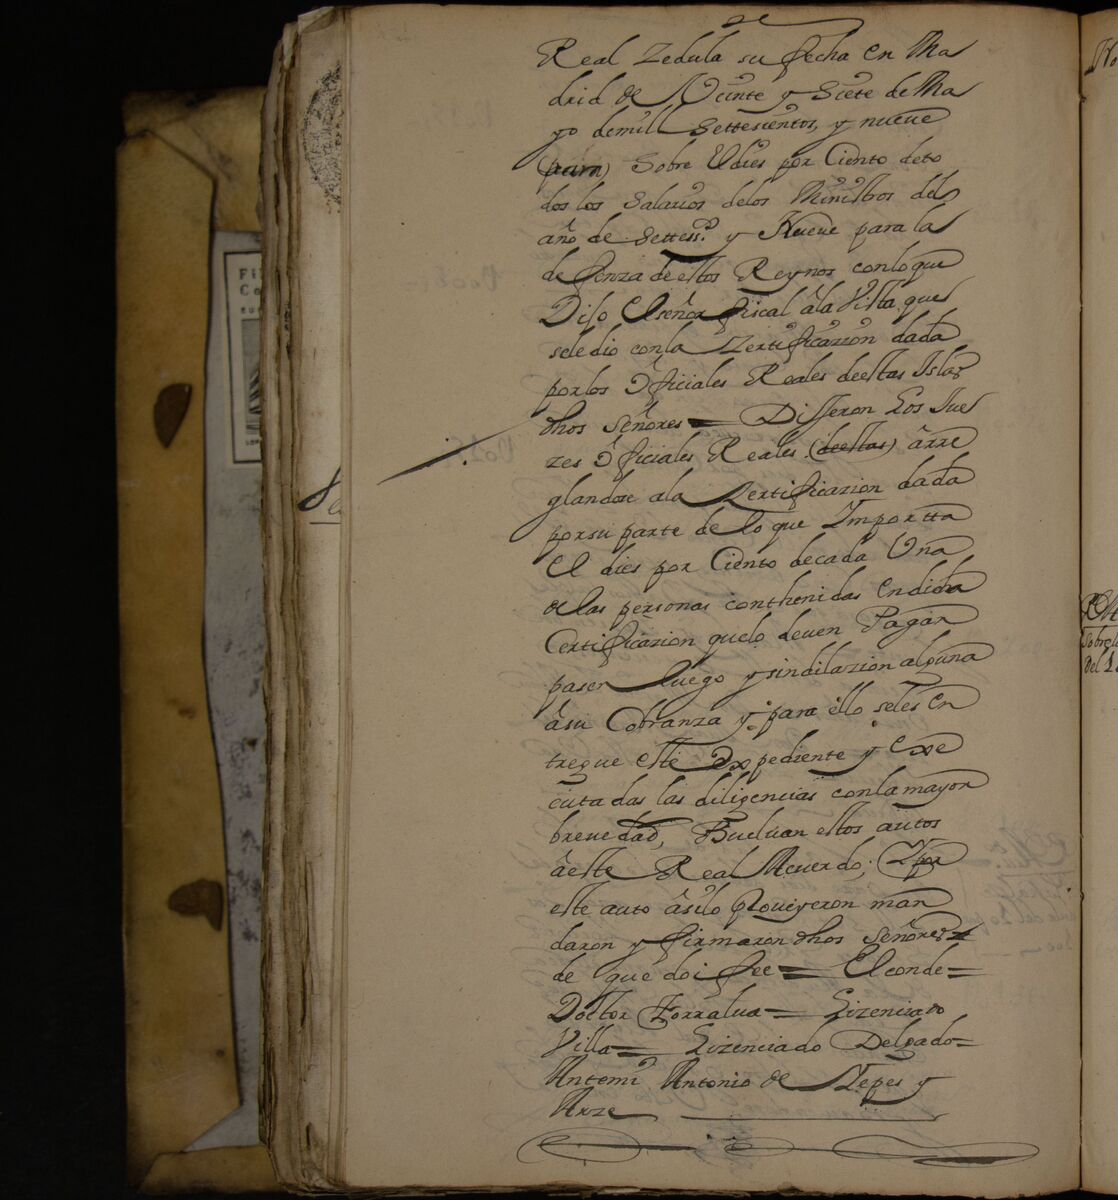 Real Zedula su fecha en Ma
drid de Veinte y Siete de Ma
yo de mill Settesientos, y nueve
sobre El dies por Ciento de to
dos los Salarios de los Ministros del
año de Settess.^s y Nueve para la
defenza de estos Reynos con lo que
Dijo El señor fiscal â la Vista que
se le dio con la Zertificazion dada
por los Ôficiales Reales de estas Islas
dhos Señores = Dijeron Los Jue
zes Ôficiales Reales (de estas) ârre
glandose a la Zertificazion dada
por su parte de lo que Importta
El dies por Ciento de cada Una
de las personas conthenidas en dicha
Certificazion que lo deven Pagar
pasen luego y sin dilazion alguna
â su Cobranza y para ello se les en
tregue este Expediente y exe
cutadas las diligencias con la mayor
brevedad, Buelvan estos autos
â este Real Acuerdo; Y por
este auto âsilo Proveyeron man
daron y firmaron dhos Señores
de que doi fee = El conde =
Doctor Torralva = Lizenciado
Villa = Lizenciado Delgado =
Antemi Antonio de Yepes y
Arze